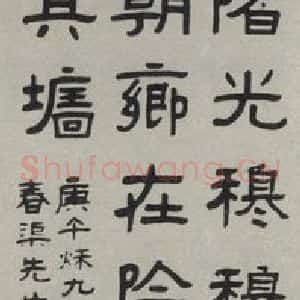 光穆穆
朝鄉在陰
其墻
庚午秋九
春渠先生
Shufawang.cn